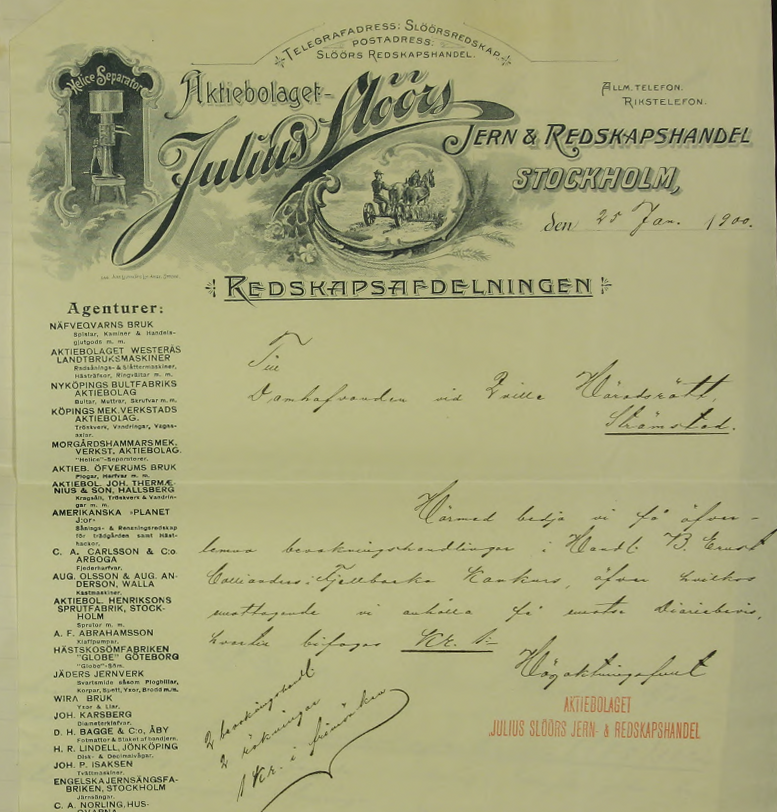 TELEGRAFADRESS: SLÖÖRSREDSKAP
POSTADRESS:
SLÖÖRS REDSKAPSHANDEL.
Helice Separator
Aktiebolaget
Julius Slöörs
ALLM. TELEFON.
RIKSTELEFON.
JERN & REDSKAPSHANDEL
STOCKHOLM,
den 25 Jan. 1900.
REDSKAPSAFDELNINGEN
Agenturer:
NÄFVEQVARNS BRUK
Spislar, Kaminer & Handels-
gjutgods m. m.
AKTIEBOLAGET WESTERÅS
LANDTBRUKSMASKINER
Radsånings- & Slåttermaskiner,
Hästräfsor, Ringvältar m. m.
NYKÖPINGS BULTFABRIKS
AKTIEBOLAG
Bultar, Muttrar, Skrufvar m. m.
KÖPINGS MEK. VERKSTADS
AKTIEBOLAG.
Tröskverk, Vandringar, Vagns-
axlar.
MORGÅRDSHAMMARS MEK.
VERKST. AKTIEBOLAG.
"Helice"-Separatorer.
AKTIEB. ÖFVERUMS BRUK
Plogar, Harfvar m. m.
AKTIEBOL. JOH. THERMÆ-
NIUS & SON, HALLSBERG
Kragsåll, Tröskverk & Vandrin-
gar m. m.
AMERIKANSKA »PLANET
J:or»
Sånings- & Rensningsredskap
för trädgården samt Häst-
hackor.
C. A. CARLSSON & C:o.
ARBOGA
Fjederharfvar.
AUG. OLSSON & AUG. AN-
DERSON, WALLA
Kastmaskiner.
AKTIEBOL. HENRIKSONS
SPRUTFABRIK, STOCK-
HOLM
Sprutor m. m.
A. F. ABRAHAMSSON
Klaffpumpar.
HÄSTSKOSÖMFABRIKEN
"GLOBE" GÖTEBORG
"Globe"-Söm.
JÄDERS JERNVERK
Svartsmide såsom Plogbillar,
Korpar, Spett, Yxor, Brodd m.m.
WIRA BRUK
Yxor & Liar.
JOH. KARSBERG
Diameterklafvar.
D. H. BAGGE & C:o, ÅBY
Fotmattor & Staket af bandjern.
H. R. LINDELL, JÖNKÖPING
Disk- & Decimalvågar.
JOH. P. ISAKSEN
Tvättmaskiner.
ENGELSKA JERNSÄNGSFA-
BRIKEN, STOCKHOLM
Jernsängar.
C. A. NORLING, HUS-
QVARNA
Till
Domhafvanden vid Qville Häradsrätt,
Strömstad.
Härmed bedja vi få öfver-
lemna bevakningshandlingar i Handl. B. Ernst
Collianders i Fjellbacka Konkurs, öfver hvilkas
emottagande vi anhålla få emotse Diariebevis,
hvarför bifogas Kr. 1:-
Högaktningsfullt
AKTIEBOLAGET
JULIUS SLÖÖRS JERN- & REDSKAPSHANDEL
2 bevakningshandl.
2 räkningar
1 Kr. i frimärken